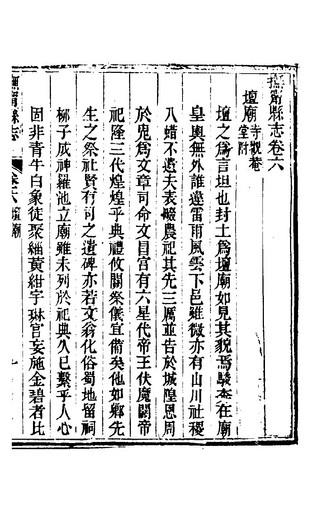 撫甯縣志卷六
壇廟寺觀菴堂附
壇之爲言坦也封土爲壇廟如見其貌焉駿奔在廟
皇輿無外誰遴雷雨風雲下邑雖微亦有山川社稷
八蜡不遺夫表畷農祀其先三厲並告於城隍恩周
於鬼爲文章司命文昌宮有六星代帝王伏魔關帝
祀隆三代煌煌乎典禮攸關祭儀宜備矣他如鄉先
生之祭社賢有司之遺碑亦若文翁化俗蜀地留祠
柳子成神羅池立廟雖未列於祀典久已繫乎人心
固非青牛白象徒聚緇黃紺宇琳宮妄施金碧者比
撫甯縣志
卷六
壇廟